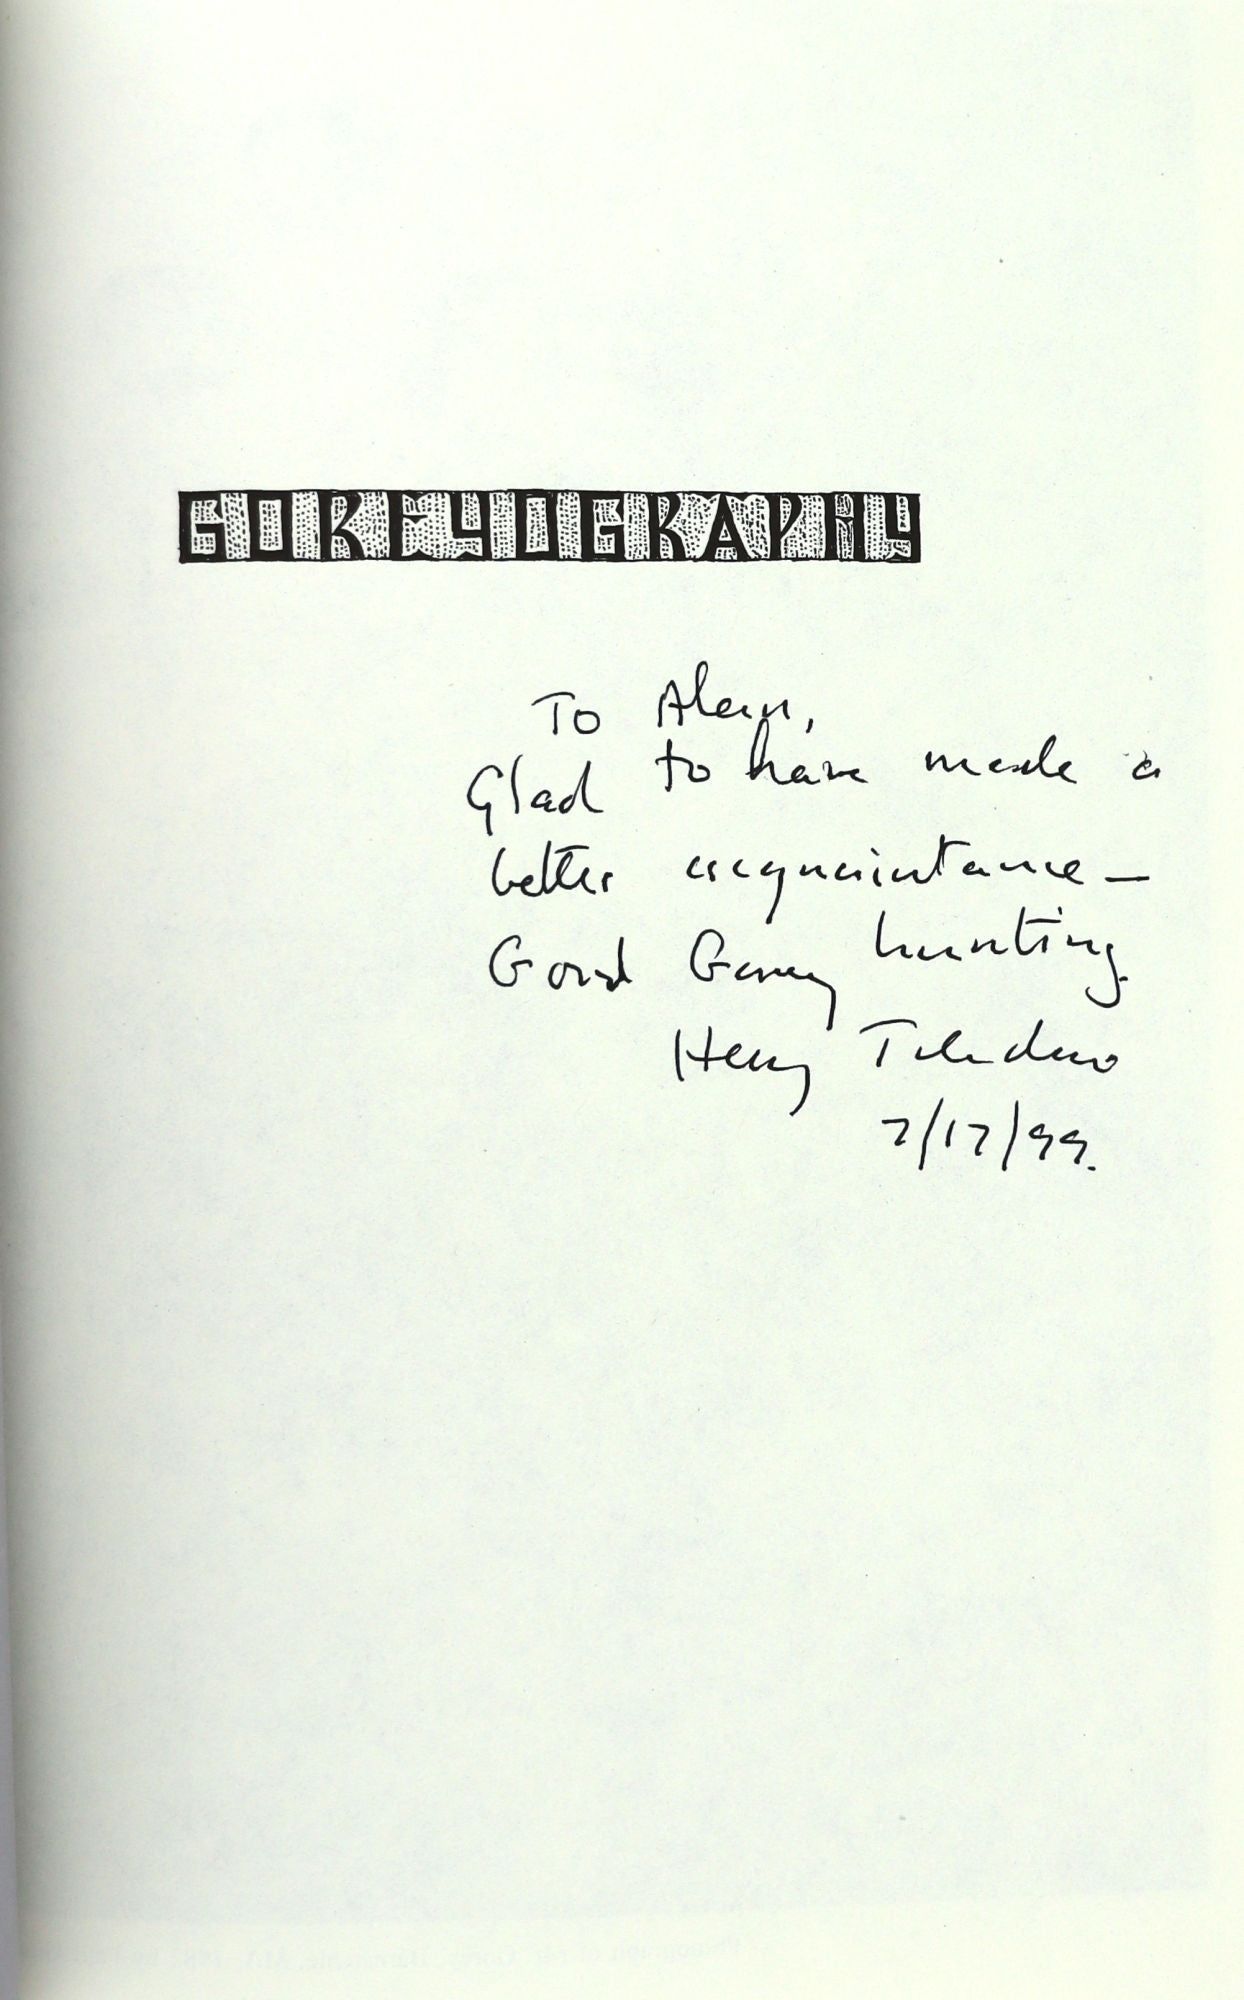 GOREYOGRAPHY
To Alan,
Glad to have made a
better acquaintance —
Good Gorey hunting.
Henry Toledano
7/17/99.